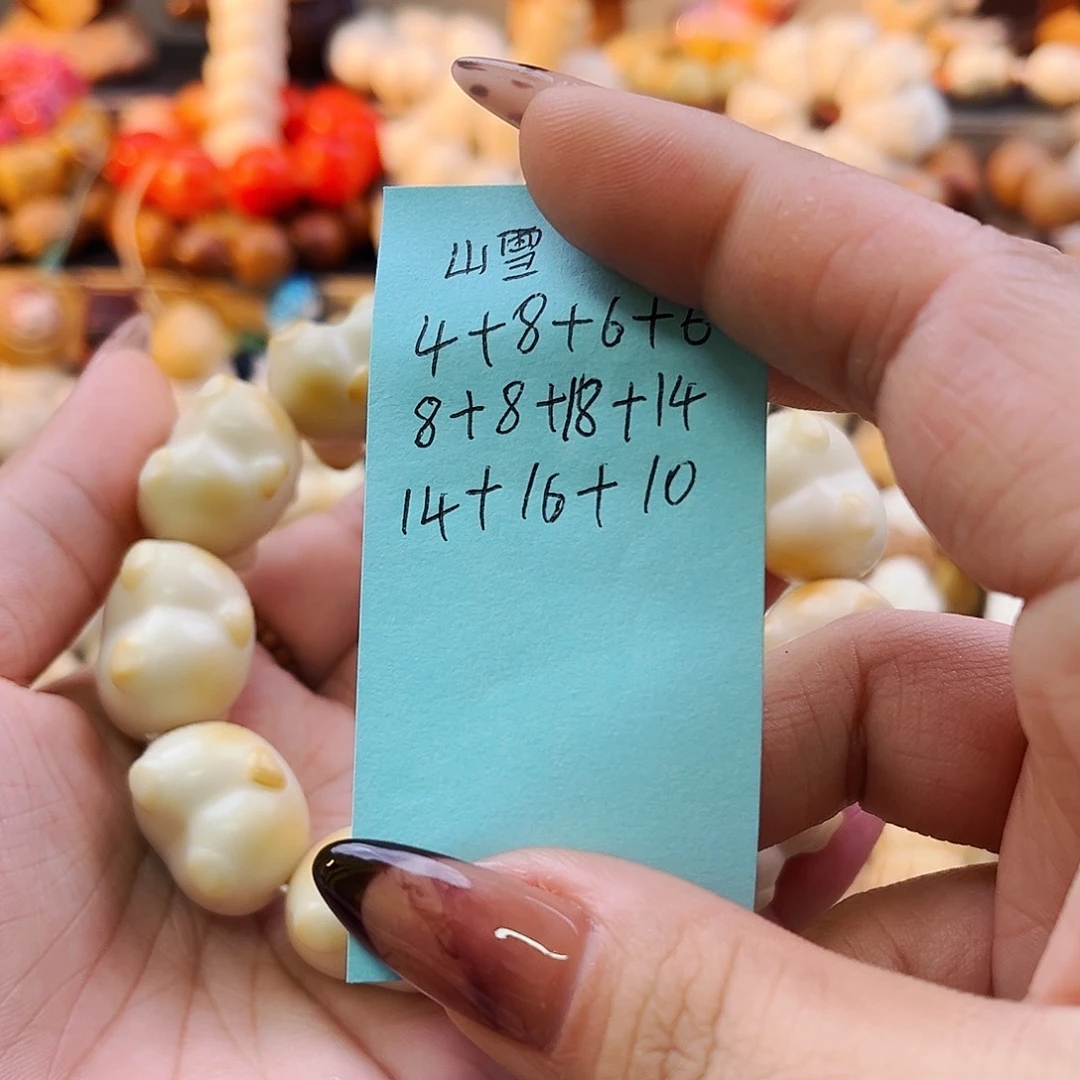 山雪
4+8+6+6
8+8+18+14
14+16+10